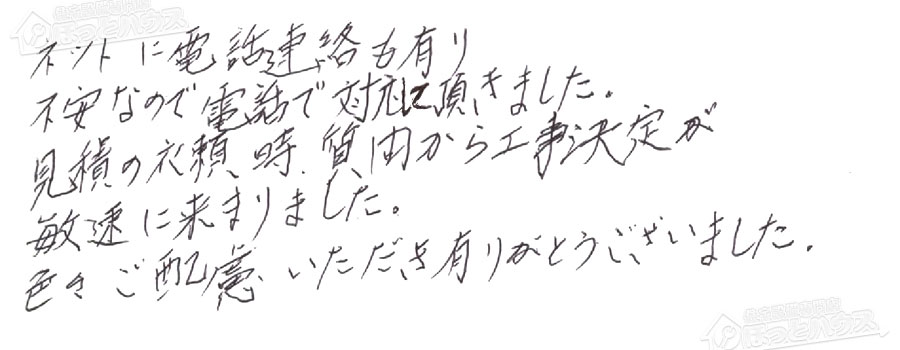 ネットに電話連絡も有り
不安なので電話で対応頂きました。
見積の依頼、時、質、由から工事決定が
敏速に来まりました。
色々ご配慮いただき有りがとうございました。
ほっとハウス
ほっとハウス